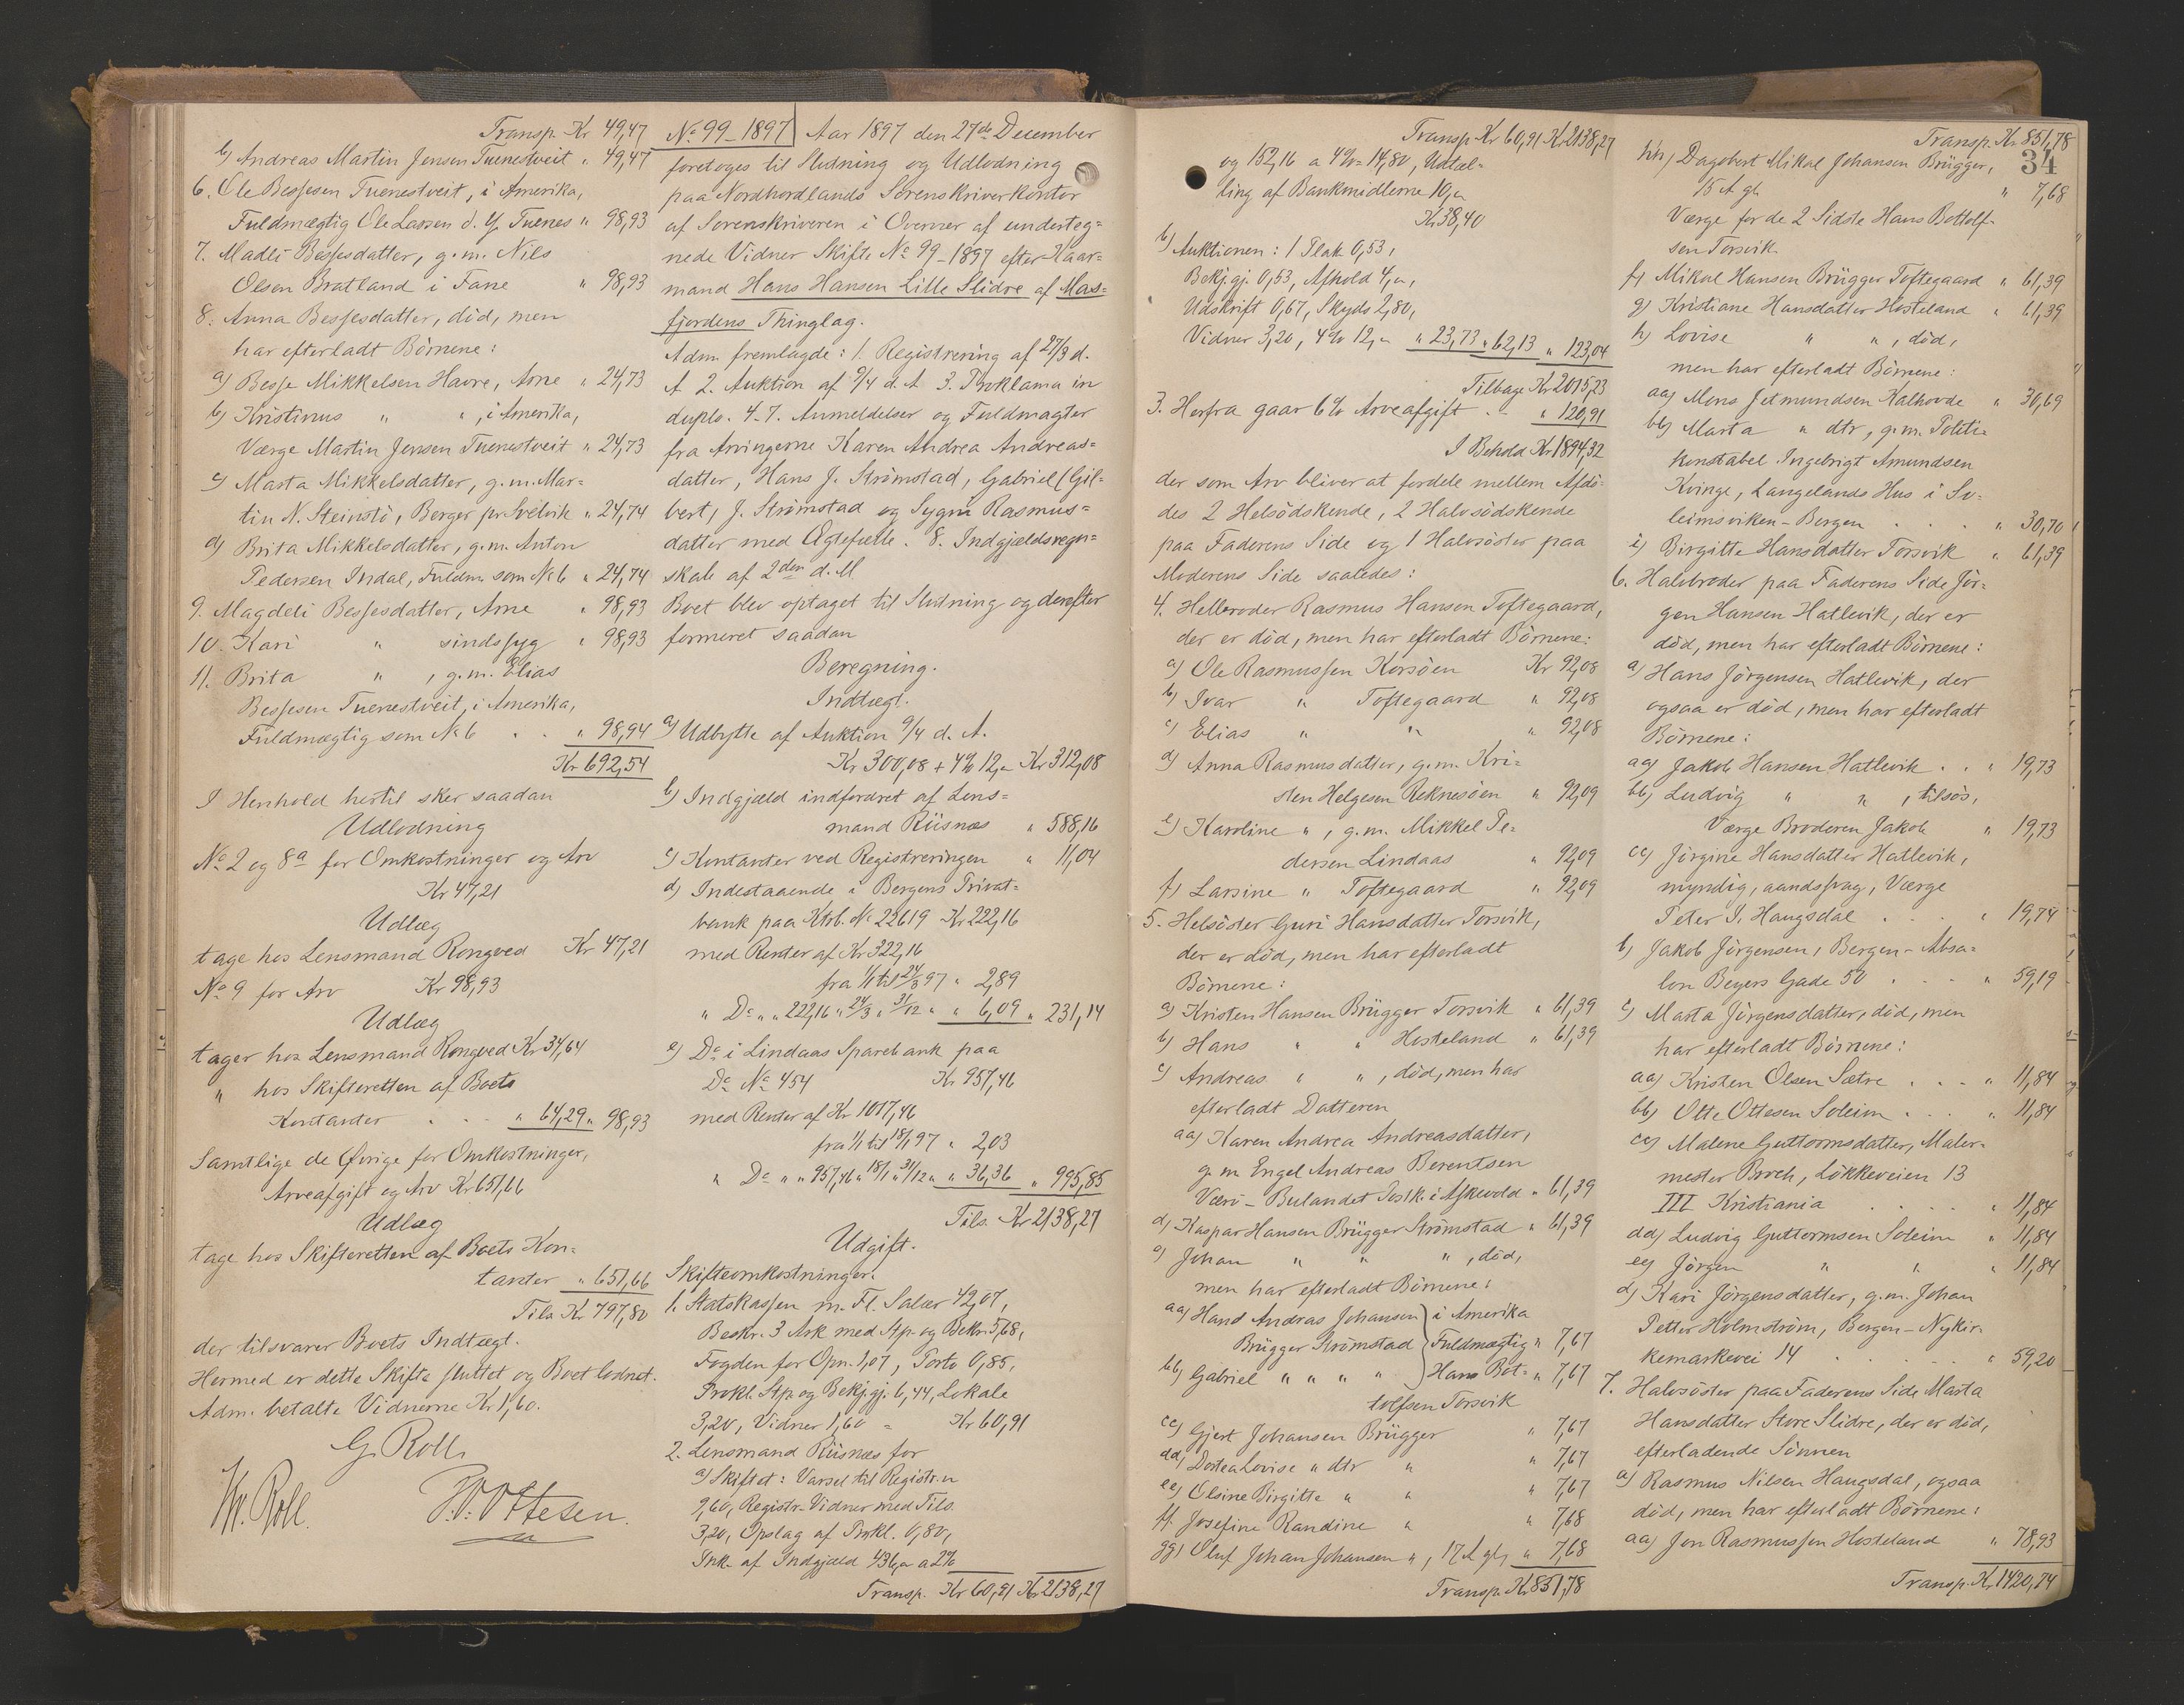 Transp. Kr 49,47
b) Andreas Martin Jensen Tuenestveit " 49,47
6. Ole Bessesen Tuenestveit, i Amerika,
Fuldmægtig Ole Lassen d. y. Tuenes " 98,93
7. Madli Bessesdatter, g. m. Nils
Olsen Bratland i Fane " 98,93
8. Anna Bessesdatter, död, men
har efterladt Börnene:
a) Besse Mikkelsen Havre, Arne " 24,73
b) Kristinus " ", i Amerika,
Værge Martin Jensen Tuenestveit " 24,73
c) Marta Mikkelsdatter, g. m. Mar=
tin N. Steinstö, Berger pr. Svelvik " 24,74
d) Brita Mikkelsdatter, g. m. Anton
Pedersen Indal, Fuldm. som No 6 " 24,74
9. Magdeli Bessesdatter, Arne " 98,93
10. Kari " sindssyg " 98,93
11. Brita " , g. m. Elias
Bessesen Tuenestveit, i Amerika,
Fuldmægtig som No 6 . . " 98,94
Kr 692,54
I Henhold hertil sker saadan
Udlodning
No 2 og 8a for Omkostninger og Arv
Kr 47,21
Udlæg
tage hos Lensmand Rongved Kr 47,21
No 9 for Arv Kr 98,93
Udlæg
tager hos Lensmand Rongved Kr 34,64
" hos Skifteretten af Boets
Kontanter . . . " 64,29 " 98,93
Samtlige de Øvrige for Omkostninger,
Arveafgift og Arv Kr 651,66
Udlæg
tage hos Skifteretten af Boets Kon=
tanter " 651,66
Tils. Kr 797,80
der tilsvarer Boets Indtægt.
Hermed er dette Skifte sluttet og Boet lodnet.
Adm. betalte Vidnerne Kr 1,60.
G. Roll.
Kr. Roll. P. V. Ottesen.
No 99_1897 Aar 1897 den 27de December
foretoges til Slutning og Udlodning
paa Nordhordlands Sorenskriverkontor
af Sorenskriveren i Overvær af underteg=
nede Vidner Skifte No 99_1897 efter Kaar=
mand Hans Hansen Lille Slidre af Mas=
fjordens Thinglag.
Adm. fremlagde: 1. Registrering af 27/3 d.
A. 2. Auktion af 9/4 d. A. 3. Proklama in
duplo. 4-7. Anmeldelser og Fuldmagter
fra Arvingerne Karen Andrea Andreas=
datter, Hans J. Strömstad, Gabriel (Gil=
bert) J. Strömstad og Sygni Rasmus=
datter med Ægtefælle. 8. Indgjældsregn=
skab af 2den d. M.
Boet blev optaget til Slutning og derefter
formeret saadan
Beregning.
Indtægt.
a) Udbytte af Auktion 9/4 d. A.
Kr 300,08 + 4% 12,- Kr 312,08
b) Indgjæld indfordret af Lens=
mand Riisnæs " 588,16
c) Kontanter ved Registreringen " 11,04
d) Indestaaende i Bergens Privat=
bank paa Ktrb. No 22619 Kr 222,16
med Renter af Kr 322,16
fra 1/1 til 24/3 97 " 2,89
" Do " " 222,16 " 24/3 " 31/12 " " 6,09 " 231,14
e) Do i Lindaas Sparebank paa
Do No 454 Kr 957,46
med Renter af Kr 1017,46
fra 1/1 til 18/1 97 " 2,03
" Do " " 957,46 " 18/1 " 31/12 " " 36,36 " 995,85
Tils. Kr 2138,27
Udgift.
Skifteomkostninger.
1. Statskassen m. Fl. Salær 42,07,
Beskr. 3 Ark med Stp. og Bekr. 5,68,
Fogden for Opn. 1,07, Porto 0,85,
Prokl. Stp. og Bekj.gj. 6,44, Lokale
3,20, Vidner 1,60 = Kr 60,91
2. Lensmand Riisnæs for
a) Skiftet: Varsel til Registr.n
9,60, Registr.-Vidner med Tils.
3,20, Opslag af Prokl. 0,80,
Ink. af Indgjæld 436,- a 2%
Transp. Kr 60,91 Kr 2138,27
Transp. Kr 60,91 Kr 2138,27
og 152,16 a 4% = 14,80, Udtæl=
ling af Bankmidlerne 10,-
Kr 38,40
b) Auktionen: 1 Plak. 0,53,
Bekj.gj. 0,53, Afhold 4,-,
Udskrift 0,67, Skyds 2,80,
Vidner 3,20, 4% 12,- " 23,73 " 62,13 " 123,04
Tilbage Kr 2015,23
3. Herfra gaar 6% Arveafgift . . " 120,91
I Behold Kr 1894,32
der som Arv bliver at fordele mellem Afdö=
des 2 Helsödskende, 2 Halvsödskende
paa Faderens Side og 1 Halvsöster paa
Moderens Side saaledes:
4. Helbroder Rasmus Hansen Toftegaard,
der er död, men har efterladt Börnene:
a) Ole Rasmussen Korsöen Kr 92,08
b) Ivar " Toftegaard " 92,08
c) Elias " " " 92,08
d) Anna Rasmusdatter, g. m. Kri=
sten Helgesen Reknesöen " 92,09
e) Karoline ", g. m. Mikkel Pe=
dersen Lindaas " 92,09
f) Larsine " Toftegaard " 92,09
5. Helsöster Guri Hansdatter Torsvik,
der er död, men har efterladt
Börnene:
a) Kristen Hansen Brügger Torsvik " 61,39
b) Hans " " Hosteland " 61,39
c) Andreas " ", död, men har
efterladt Datteren
aa) Karen Andrea Andreasdatter,
g. m. Engel Andreas Berentsen
Værö - Bulandet Postk. i Askevold " 61,39
d) Kaspar Hansen Brügger Strömstad " 61,39
e) Johan " " ", död,
men har efterladt Börnene:
aa) Hans Andreas Johansen } i Amerika
Brügger Strömstad } Fuldmægtig " 7,67
bb) Gabriel " " " " } Hans Bot= " 7,67
tolfsen Torsvik
cc) Gjert Johansen Brügger " 7,67
dd) Dortea Lovise " dtr " " 7,67
ee) Olsine Birgitte " " " 7,67
ff. Josefine Randine " " 7,68
gg) Oluf Johan Johansen ", 17 A. gl, " 7,68
Transp. Kr 851,78
Transp. Kr 851,78
34
hh) Dagobert Mikal Johansen Brügger,
15 A. gl. " 7,68
Værge for de 2 Sidste Hans Bottolf=
sen Torsvik.
f) Mikal Hansen Brügger Toftegaard " 61,39
g) Kristiane Hansdatter Hosteland " 61,39
h) Lovise " ", död,
men har efterladt Börnene:
aa) Mons Jetmundsen Kalhovde " 30,69
bb) Marta " dtr, g. m. Politi=
konstabel Ingebrigt Amundsen
Kvinge, Langelands Hus i So=
leimsviken - Bergen . . . " 30,70
i) Birgitte Hansdatter Torsvik " 61,39
6. Halvbroder paa Faderens Side Jör=
gen Hansen Hatlevik, der er
död, men har efterladt Börnene:
a) Hans Jörgensen Hatlevik, der
ogsaa er död, men har efterladt
Börnene:
aa) Jakob Hansen Hatlevik . . " 19,73
bb) Ludvig " ", tilsös,
Værge Broderen Jakob " 19,73
cc) Jörgine Hansdatter Hatlevik,
myndig, aandssvag, Værge
Peter I. Haugsdal . . . " 19,74
b) Jakob Jörgensen, Bergen - Absa=
lon Beyers Gade 50 . . . " 59,19
c) Marta Jörgensdatter, död, men
har efterladt Börnene:
aa) Kristen Olsen Sætre . . . " 11,84
bb) Otte Ottesen Soleim . . . " 11,84
cc) Malene Guttormsdatter, Maler=
mester Broch, Lökkeveien 13
III Kristiania . . . . " 11,84
dd) Ludvig Guttormsen Soleim " 11,84
ee) Jörgen " " " 11,84
d) Kari Jörgensdatter, g. m. Johan
Petter Holmström, Bergen - Nykir=
kemarkevei 14 . . . . " 59,20
7. Halvsöster paa Faderens Side Marta
Hansdatter Store Slidre, der er död,
efterladende Sönnen
a) Rasmus Nilsen Haugsdal, ogsaa
död, men har efterladt Börnene:
aa) Jon Rasmussen Hosteland " 78,93
Transp. Kr 1420,74